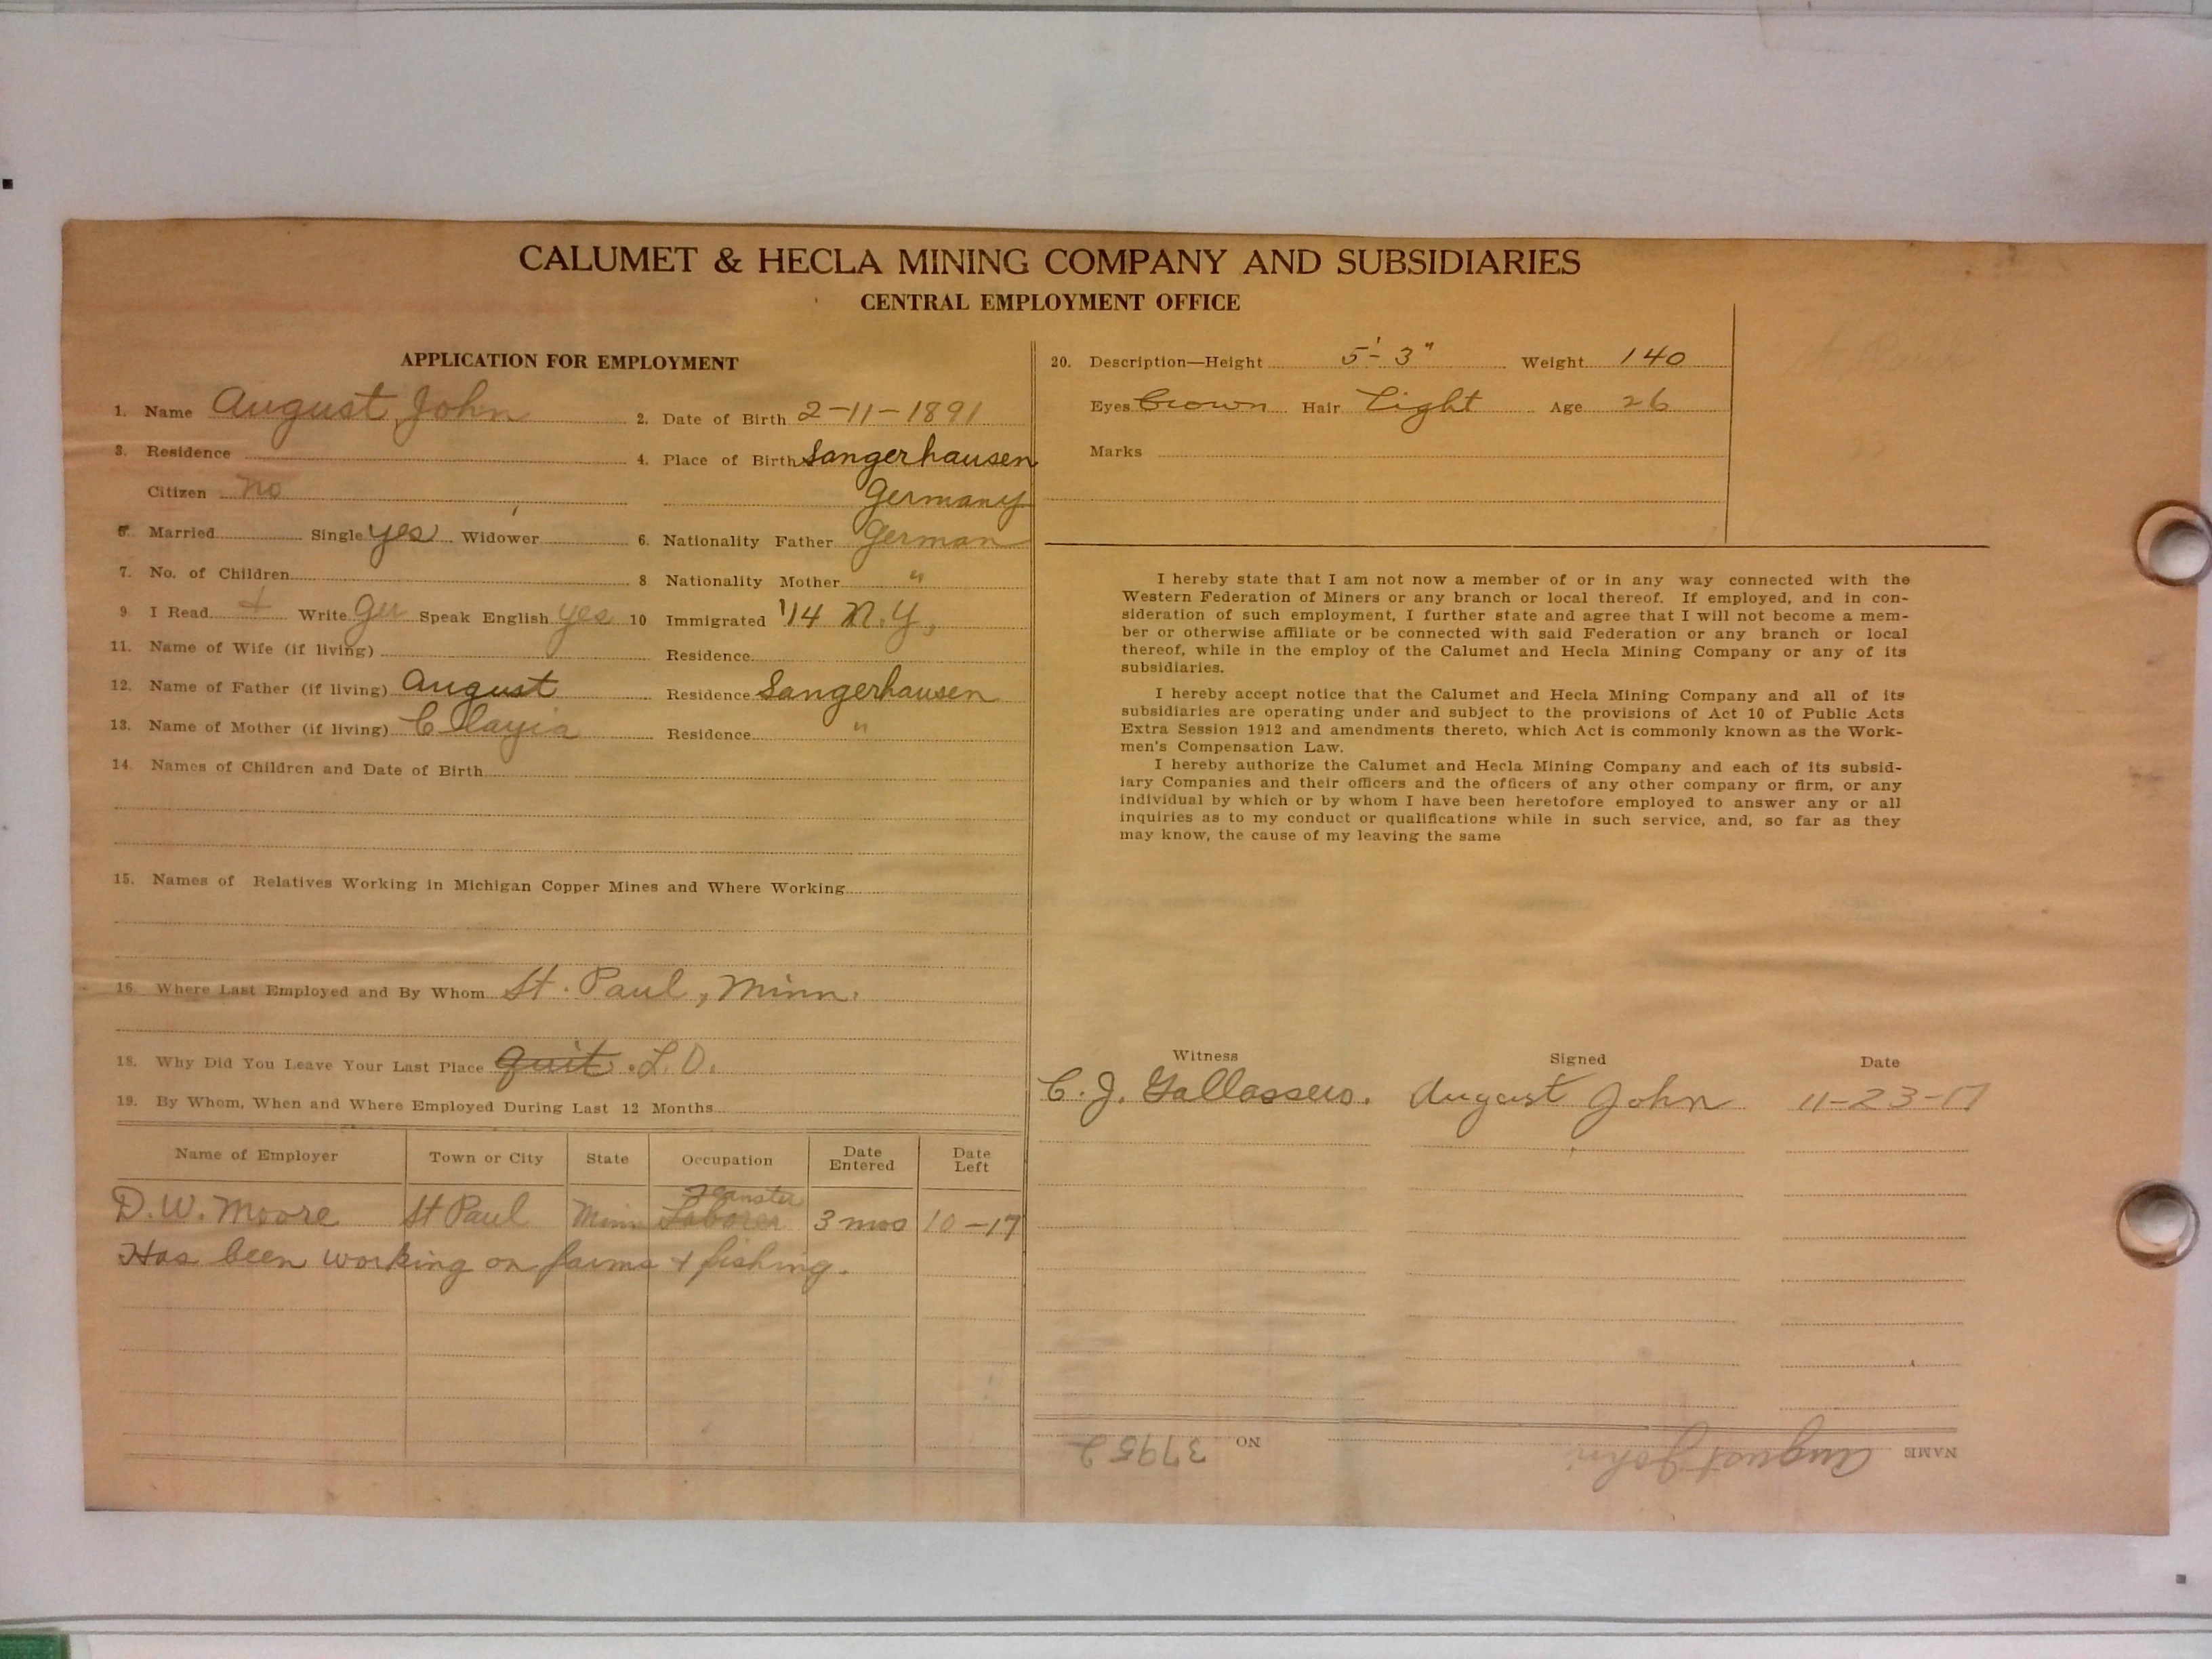 CALUMET & HECLA MINING COMPANY AND SUBSIDIARIES
CENTRAL EMPLOYMENT OFFICE
APPLICATION FOR EMPLOYMENT
1. Name August John 2. Date of Birth 2-11-1891
3. Residence 4. Place of Birth Sangerhausen
Citizen no Germany
5. Married Single yes Widower 6. Nationality Father German
7. No. of Children 8 Nationality Mother "
9 I Read + Write Ger Speak English yes 10 Immigrated '14 N.Y,
11. Name of Wife (if living) Residence
12. Name of Father (if living) August Residence Sangerhausen
13. Name of Mother (if living) Residence "
14. Names of Children and Date of Birth
15. Names of Relatives Working in Michigan Copper Mines and Where Working
16. Where Last Employed and By Whom St. Paul, Minn.
18. Why Did You Leave Your Last Place quit. L.D.
19. By Whom, When and Where Employed During Last 12 Months
Name of Employer Town or City State Occupation Date Entered Date Left
Teamster
D.W. Moore St Paul Minn Laborer 3 mos 10-17
Has been working on farms + fishing.
20. Description—Height 5'-3" Weight 140
Eyes Brown Hair Light Age 26
Marks
I hereby state that I am not now a member of or in any way connected with the
Western Federation of Miners or any branch or local thereof. If employed, and in con-
sideration of such employment, I further state and agree that I will not become a mem-
ber or otherwise affiliate or be connected with said Federation or any branch or local
thereof, while in the employ of the Calumet and Hecla Mining Company or any of its
subsidiaries.
I hereby accept notice that the Calumet and Hecla Mining Company and all of its
subsidiaries are operating under and subject to the provisions of Act 10 of Public Acts
Extra Session 1912 and amendments thereto, which Act is commonly known as the Work-
men's Compensation Law.
I hereby authorize the Calumet and Hecla Mining Company and each of its subsid-
iary Companies and their officers and the officers of any other company or firm, or any
individual by which or by whom I have been heretofore employed to answer any or all
inquiries as to my conduct or qualifications while in such service, and, so far as they
may know, the cause of my leaving the same
Witness Signed Date
C. J. August John 11-23-17
NAME August John NO 37952